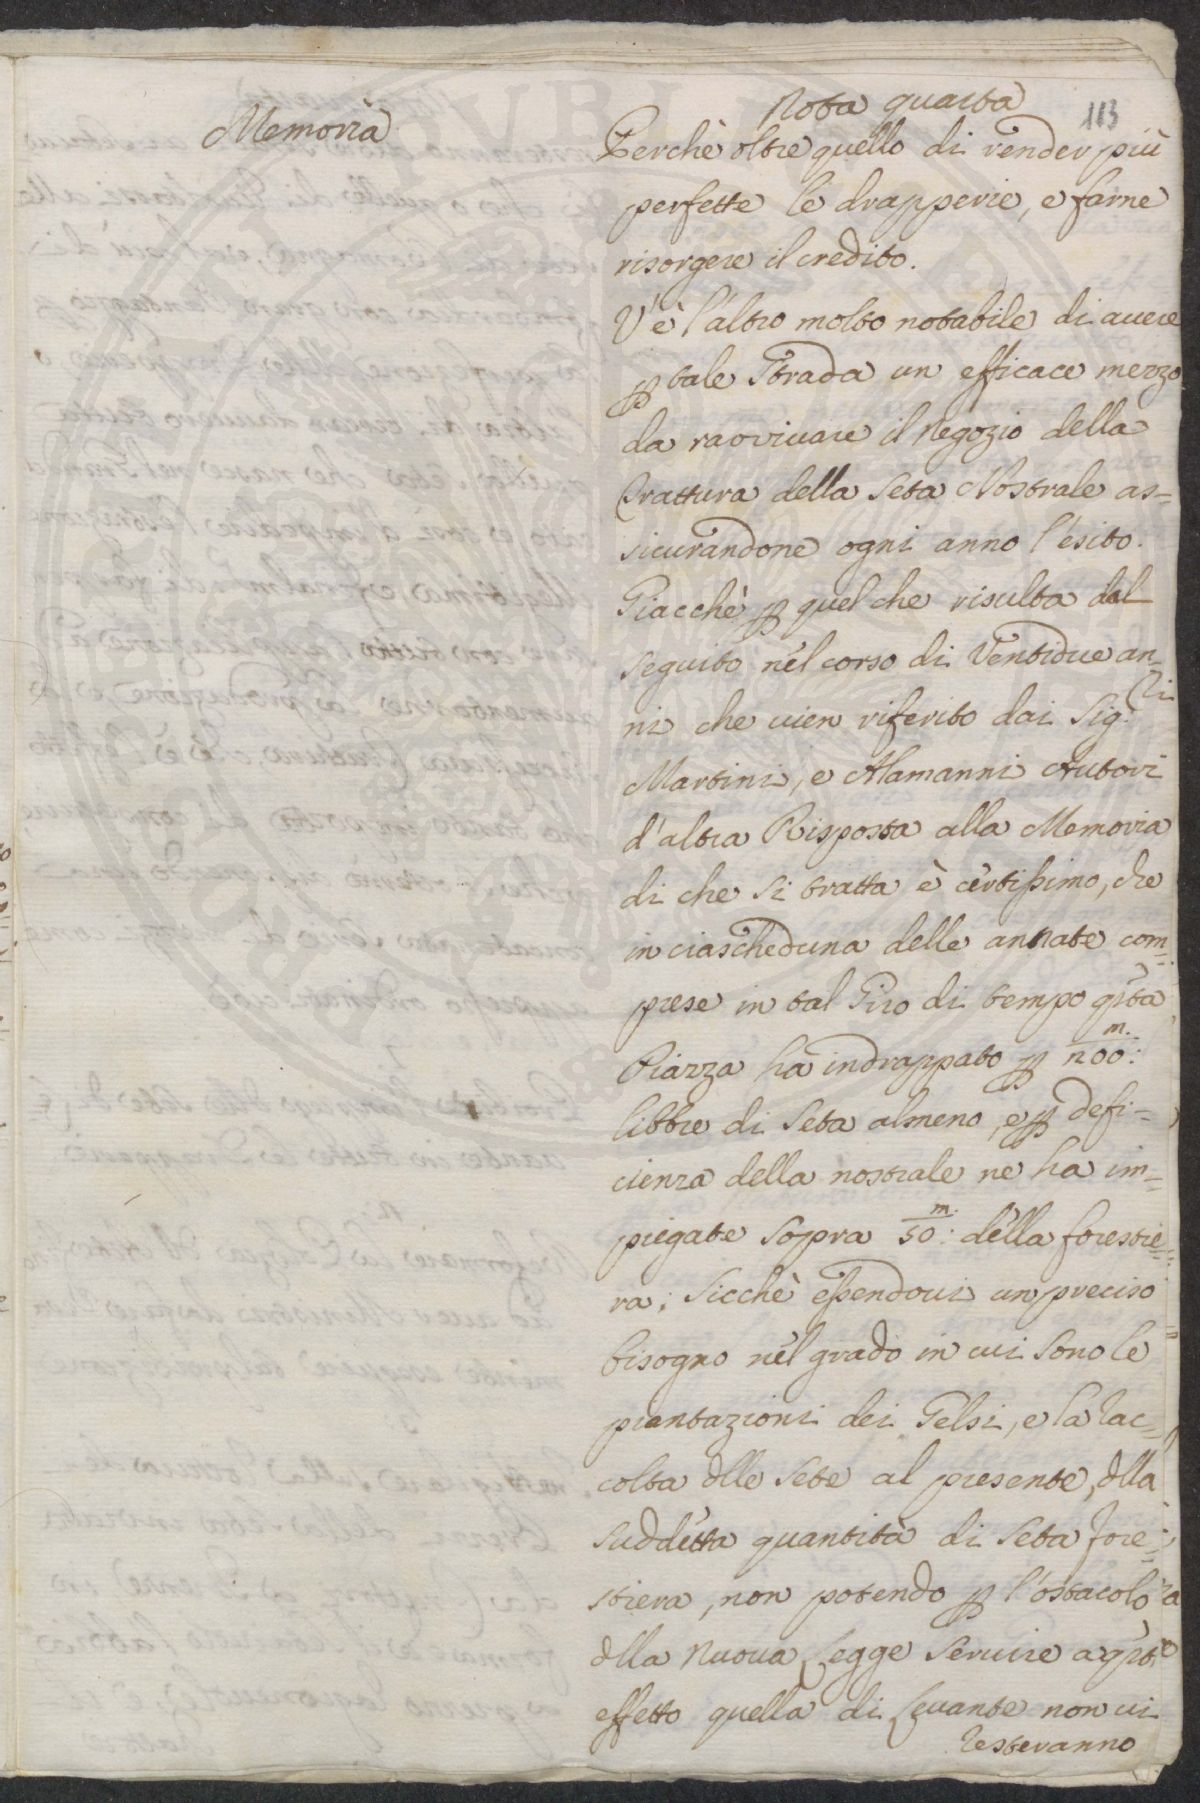 113
Memoria
Nota quarta
Perchè oltre quello di render più
perfette le drapperie, e farne
risorgere il credito.
V'è l'altro molto notabile di avere
p tale Strada un efficace mezzo
da ravvivare il Negozio della
Trattura della Seta Nostrale as=
sicurandone ogni anno l'esito.
Giacchè p quel che risulta dal
seguito nel corso di Ventidue an=
ni che vien riferito dai Sig.ri
Martini, e Alamanni Autori
d'altra Risposta alla Memoria
di che si tratta è certissimo, che
in ciascheduna delle annate com=
prese in tal Giro di tempo qsta
Piazza ha indrappato p 200.m:
libbre di Seta almeno, e p defi=
cienza della nostrale ne ha im=
piegate sopra 50.m: della forestie=
ra; Sicchè essendovi un preciso
bisogno nel grado in cui sono le
piantazioni dei Gelsi, e la rac=
colta dlle Sete al presente, dlla
suddetta quantità di Seta fore=
stiera, non potendo p l'ostacolo
dlla nuova Legge servire a qsto
effetto quella di Levante non vi
resteranno